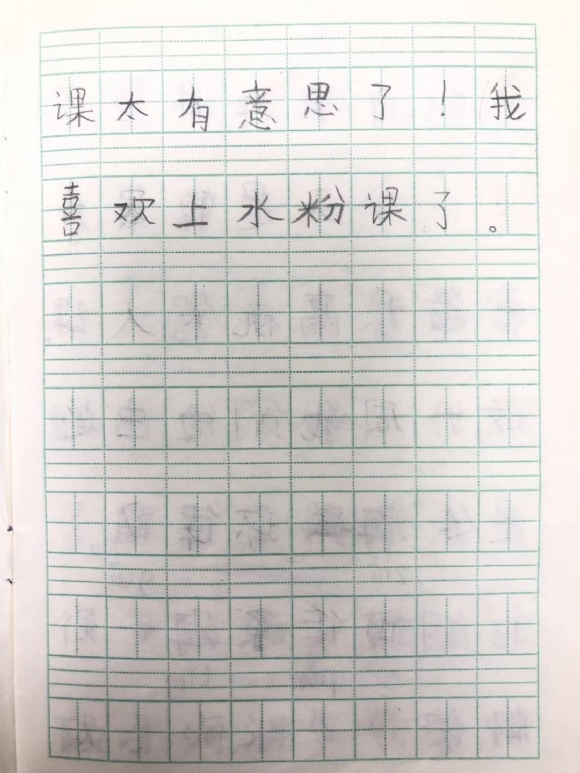 课太有意思了！我
喜欢上水粉课了。